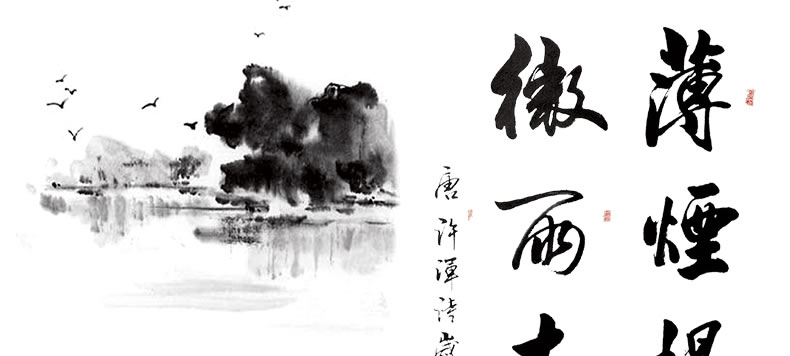 薄煙
微雨
唐許渾詩歲